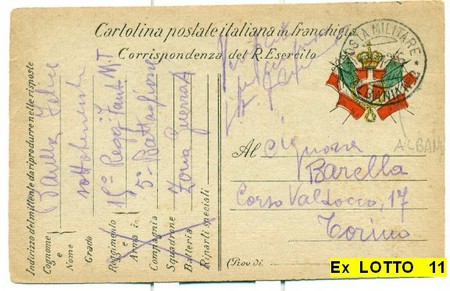 Cartolina postale italiana in franchigia
Corrispondenza del R. Esercito
POSTA MILITARE
Indirizzo del mittente da riprodurre nelle risposte
Cognome
e
Nome
Grado
sottotenente
Reggimento
o
Arma
15° Regg. Fant. M.T
Compagnia
5° Battaglione
Squadrone
Batteria
Zona Guerra
Riparti speciali
Al Signore
Barella
Corso Valdocco, 17
Torino
(Prov. di
ALBAN
Ex LOTTO 11